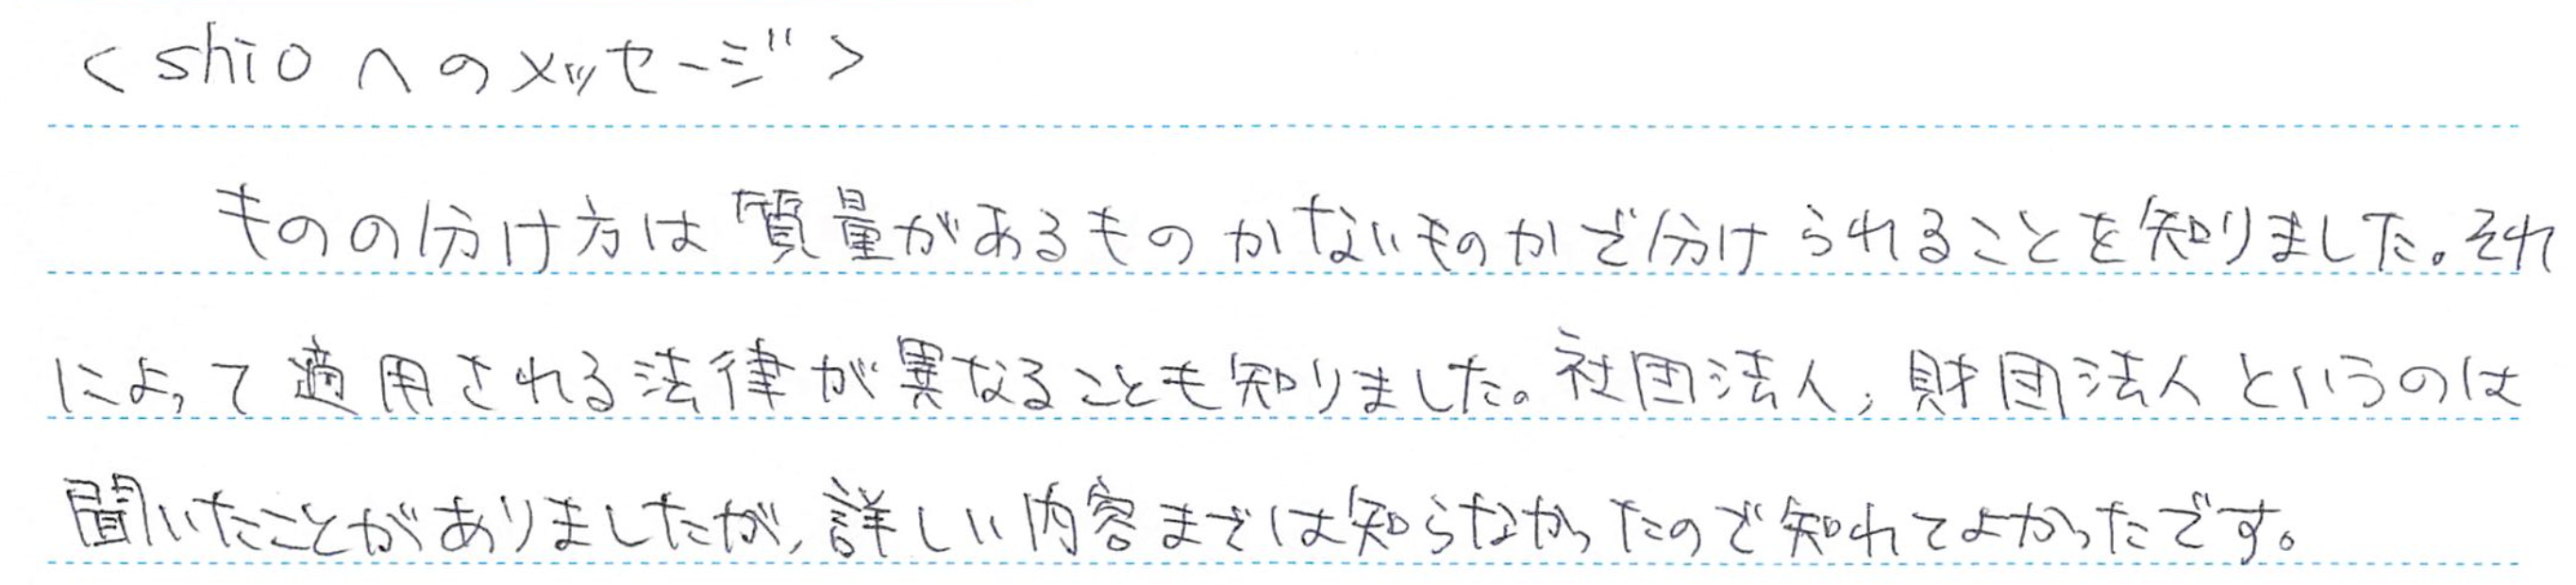 <shioへのメッセージ>
ものの分け方は質量があるものかないものかで分けられることを知りました。それ
によって適用される法律が異なることも知りました。社団法人,財団法人というのは
聞いたことがありましたが,詳しい内容までは知らなかったので知れてよかったです。